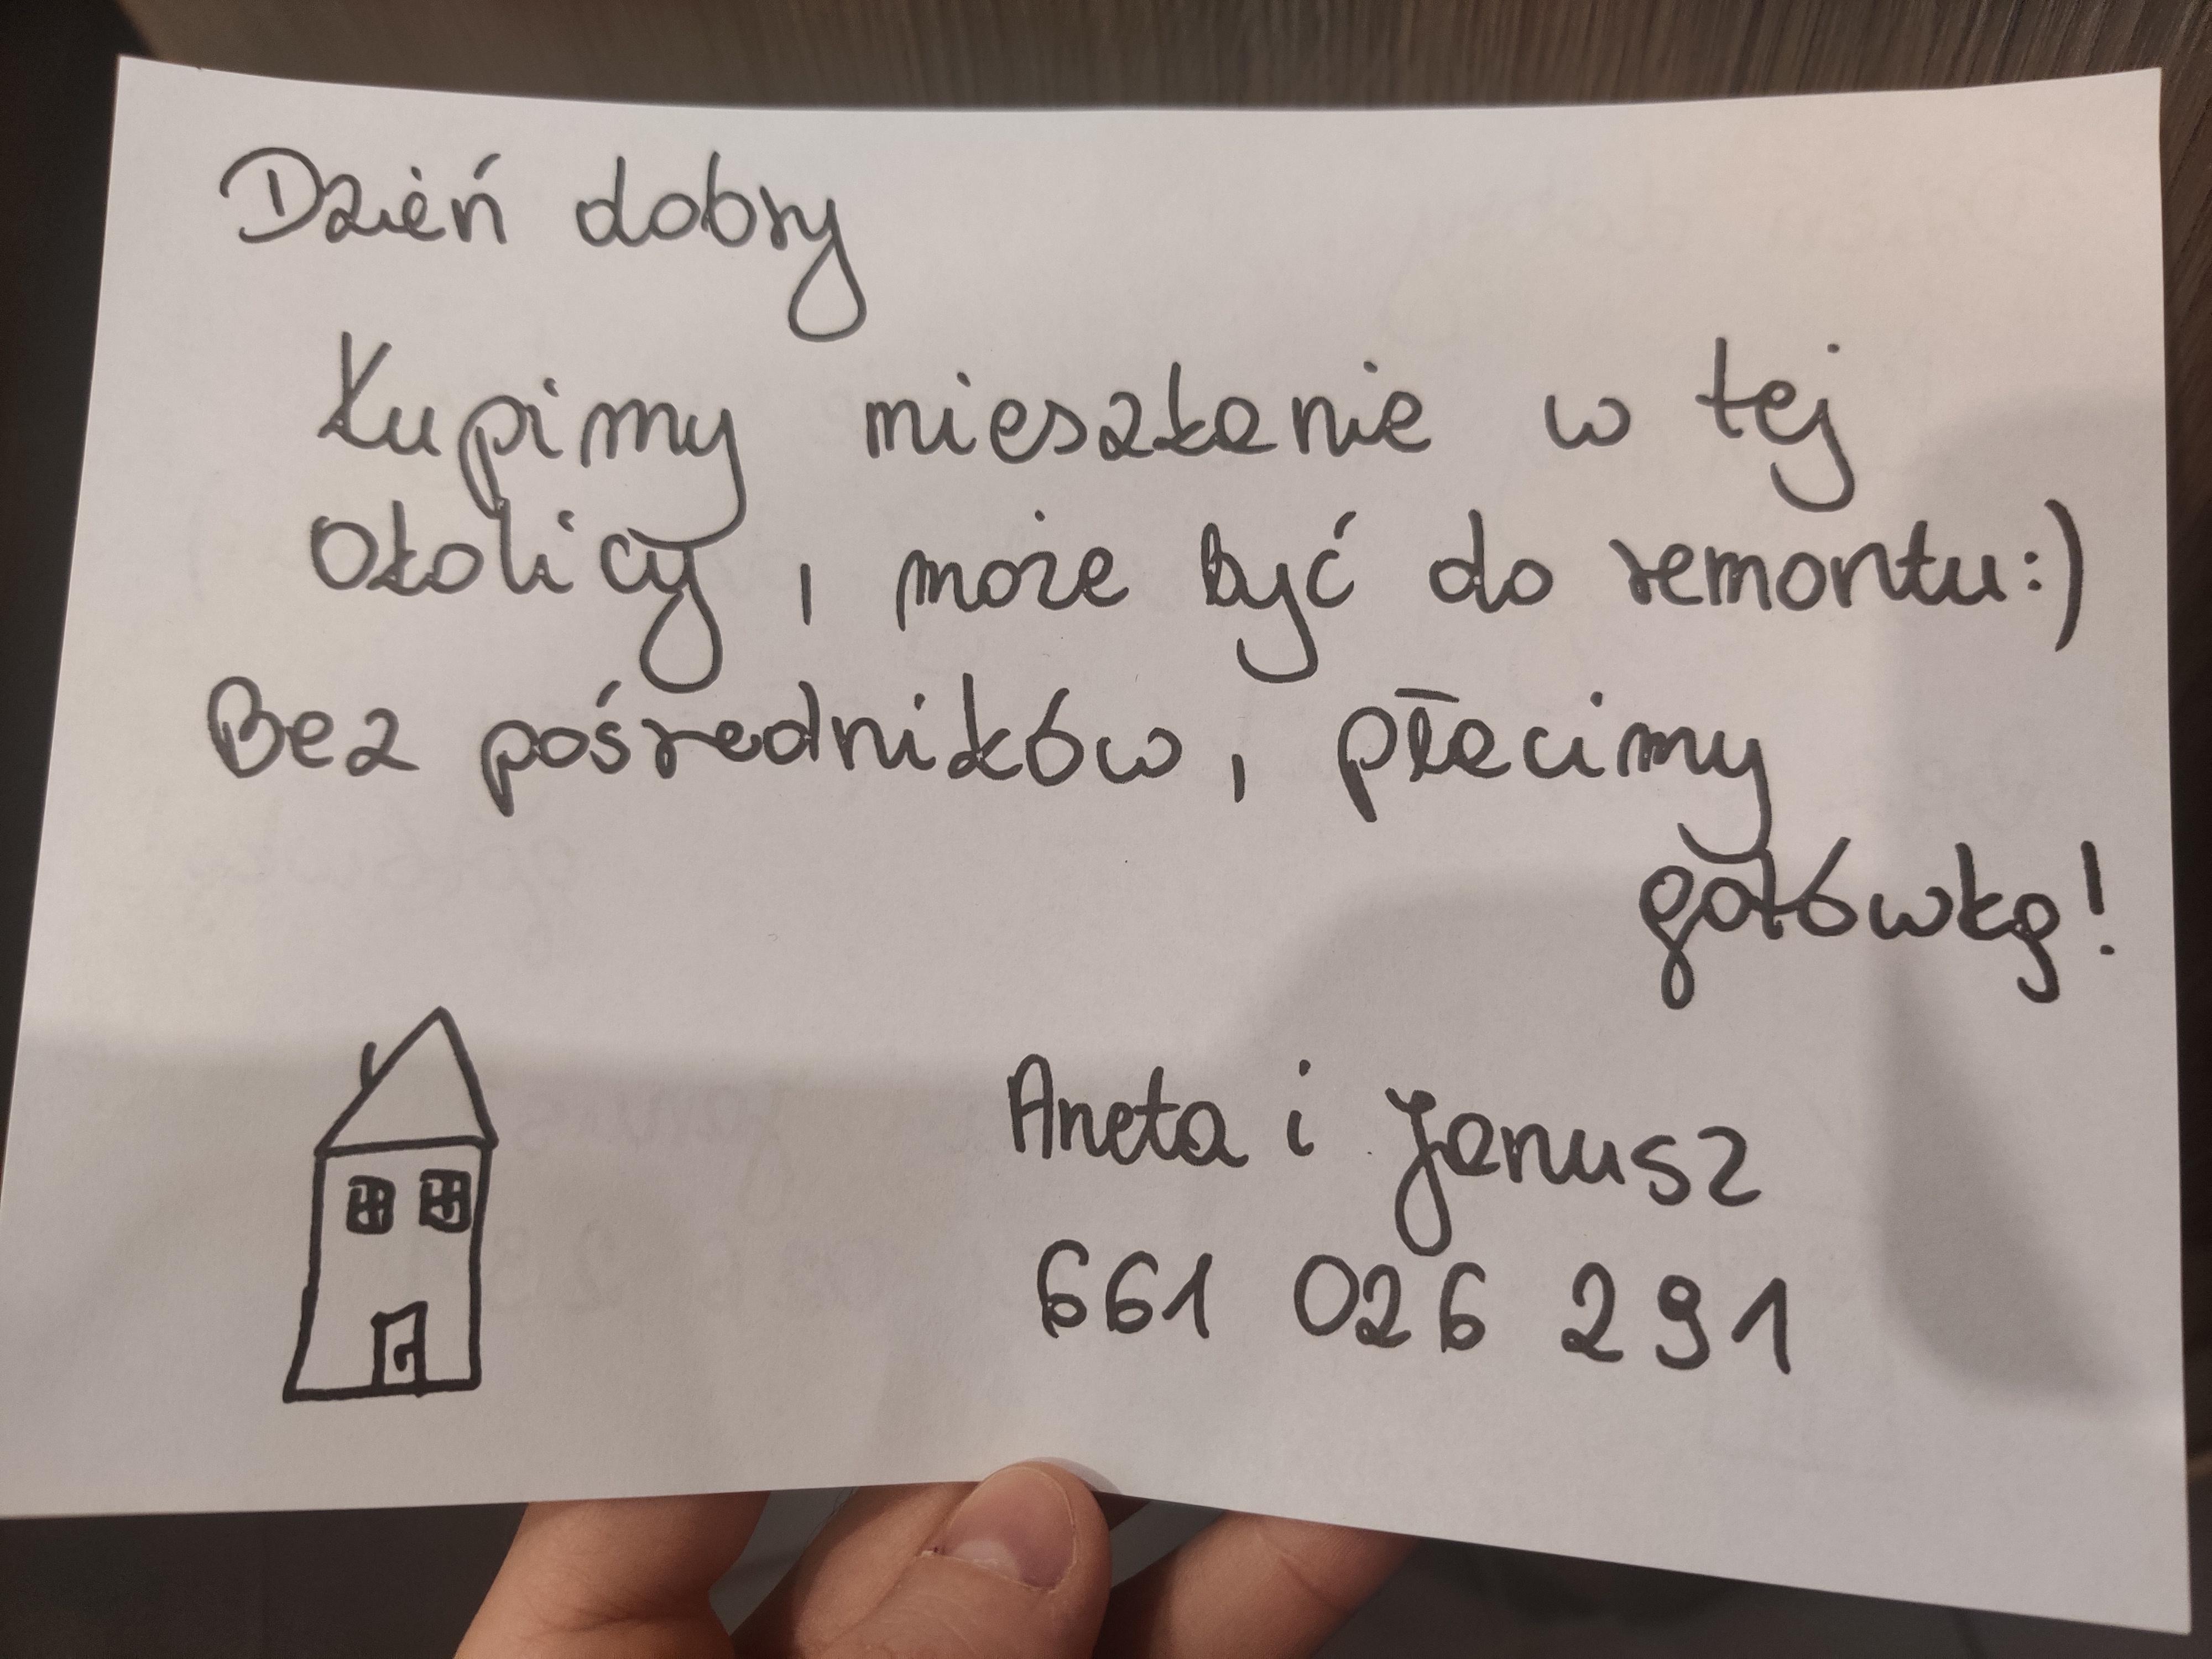 Dzień dobry
Kupimy mieszkanie w tej
okolicy, może być do remontu:)
Bez pośredników, płacimy
gotówką!
Aneta i Janusz
661 026 291